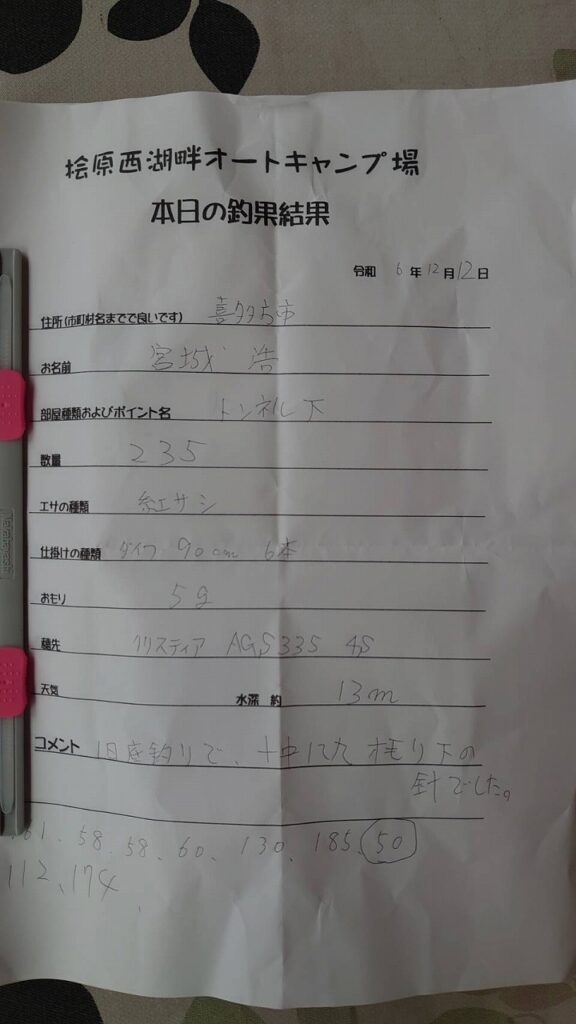 桧原西湖畔オートキャンプ場
本日の釣果結果
令和 6年12月12日
住所(市町村名までで良いです) 喜多方市
お名前 宮城 浩
部屋種類およびポイント名 トンネル下
数量 235
エサの種類 紅サシ
仕掛けの種類 ダイワ 90cm 6本
おもり 5g
穂先 クリスティア AGS 335 4S
天気 水深 約 13m
コメント 1日底釣りで、十中八九 オモリ下の
針でした。
61、58、58、60、130、185、50
112、174